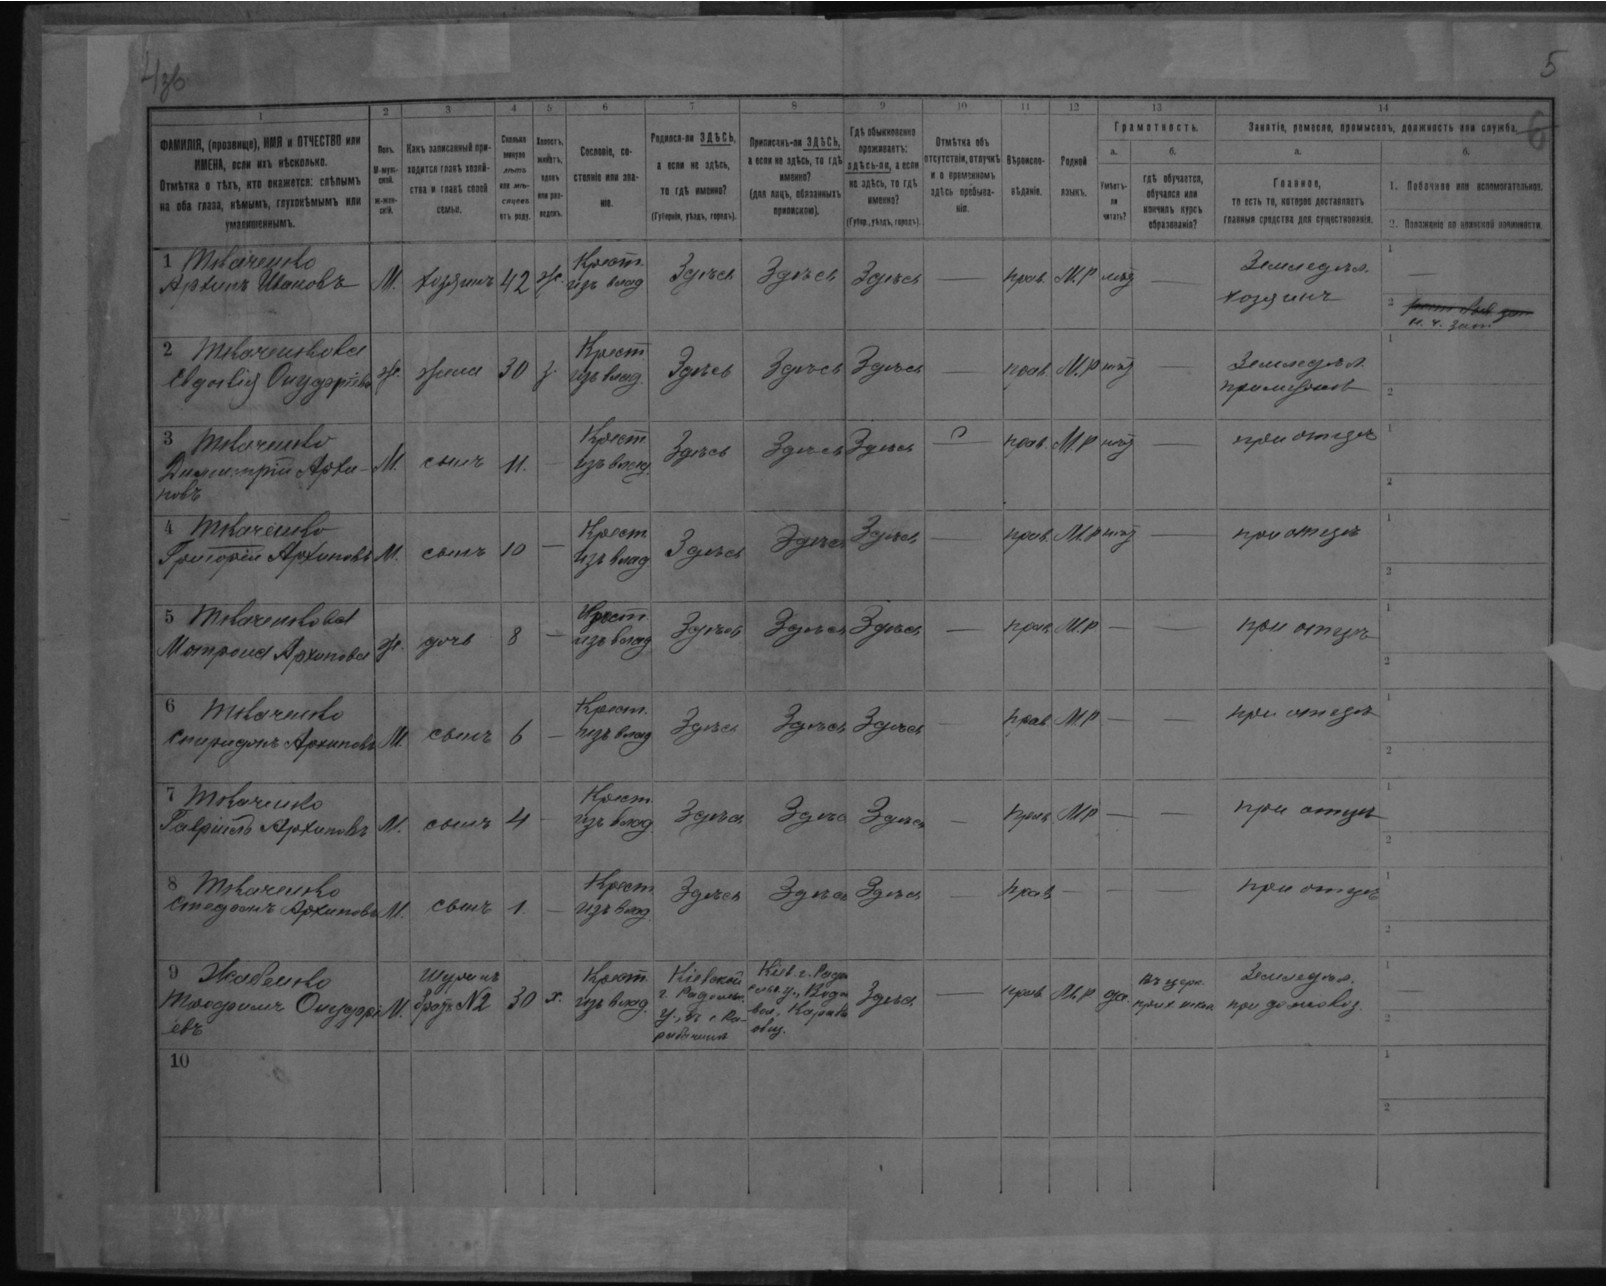 5
6
1 2 3 4 5 6 7 8 9 10 11 12 13 14
ФАМИЛІЯ, (прозвище), ИМЯ и ОТЧЕСТВО или
ИМЕНА, если ихъ нѣсколько.
Отмѣтка о тѣхъ, кто окажется: слѣпымъ
на оба глаза, нѣмымъ, глухонѣмымъ или
умалишеннымъ.
Полъ.
М-муж-
ской.
ж-жен-
скій.
Какъ записанный при-
ходится главѣ хозяй-
ства и главѣ своей
семьи.
Сколько
минуло
лѣтъ
или мѣ-
сяцевъ
отъ роду.
Холостъ,
женатъ,
вдовъ
или раз-
веденъ.
Сословіе, со-
стояніе или зва-
ніе.
Родился-ли ЗДѢСЬ,
а если не здѣсь,
то гдѣ именно?
(Губернія, уѣздъ, городъ).
Приписанъ-ли ЗДѢСЬ,
а если не здѣсь, то гдѣ
именно?
(для лицъ, обязанныхъ
припискою).
Гдѣ обыкновенно
проживаетъ:
здѣсь-ли, а если
не здѣсь, то гдѣ
именно?
(Губер., уѣздъ, городъ).
Отмѣтка объ
отсутствіи, отлучкѣ
и о временномъ
здѣсь пребыва-
ніи.
Вѣроиспо-
вѣданіе.
Родной
языкъ.
Грамотность.
а.
Умѣетъ-
ли
читать?
б.
гдѣ обучается,
обучался или
кончилъ курсъ
образованія?
Занятіе, ремесло, промыселъ, должность или служба.
а.
Главное,
то есть то, которое доставляетъ
главныя средства для существованія.
б.
1. Побочное или вспомогательное.
2. Положеніе по воинской повинности.
1 Ткаченко
Архипъ Ивановъ М. хозяинъ 42 ж. Крест. изъ влад. Здѣсь Здѣсь Здѣсь — прав. М.Р нѣт — Земледѣл. хозяинъ 1 — 2
2 Ткаченкова
Евдокія Онуфріева ж. жена 30 з. Крест изъ влад. Здѣсь Здѣсь Здѣсь — прав. М.Р нѣт — Земледѣл. 1 2
3 Ткаченко
Димитрій Архи-
повъ М. сынъ 11. — Крест изъ влад. Здѣсь Здѣсь Здѣсь — прав. М.Р нѣт — при отцѣ 1 2
4 Ткаченко
Григорій Архиповъ М. сынъ 10 — Крест изъ влад Здѣсь Здѣсь Здѣсь — прав. М.Р нѣт — при отцѣ 1 2
5 Ткаченкова
Матрона Архипова ж. дочь 8 — Крест. изъ влад Здѣсь Здѣсь Здѣсь — прав. М.Р — — при отцѣ 1 2
6 Ткаченко
Спиридонъ Архиповъ М. сынъ 6 — Крест. изъ влад Здѣсь Здѣсь Здѣсь — прав. М.Р — — при отцѣ 1 2
7 Ткаченко
Гавріилъ Архиповъ М. сынъ 4 — Крест. изъ влад Здѣсь Здѣсь Здѣсь — прав. М.Р — — при отцѣ 1 2
8 Ткаченко
Стефанъ Архиповъ М. сынъ 1. — Крест изъ влад. Здѣсь Здѣсь Здѣсь — прав — — — при отцѣ 1 2
9
Трофимъ Онуфрі
евъ М. Шуринъ братъ №2 30 х. Крест изъ влад. Кіевской г. Радомы. у., въ с. Здѣсь — прав. М.Р да въ церк. прих. школ Земледѣл. 1 — 2
10 1 2